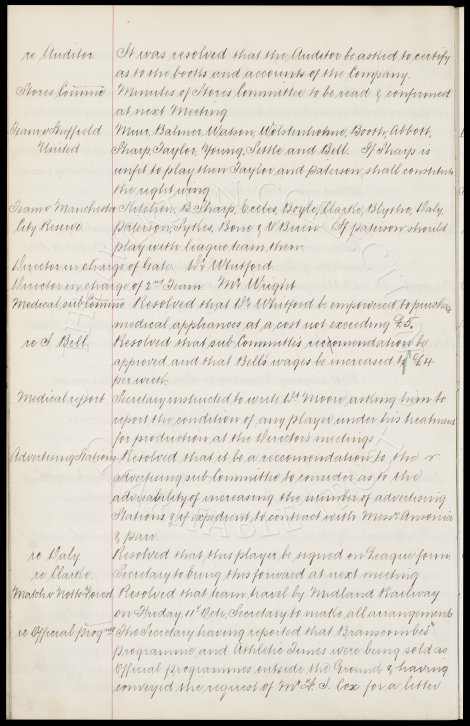 re Auditor It was resolved that the Auditor be asked to certify
as to the books and accounts of the Company.
Stores Comme Minutes of Stores Committee to be read & confirmed
at next Meeting
Team v Sheffield Muir, Balmer, Watson, Wolstenholme, Booth, Abbott,
United Sharp, Taylor, Young, Settle and Bell. If Sharp is
unfit to play then Taylor and Paterson shall constitute
the right wing
Team v Manchester Kitchen, B. Sharp, Eccles, Boyle, Clarke, Blythe, Daly,
City Reserve Paterson, Sykes, Bone & O'Brien. If Paterson should
play with league team then
Director in charge of Gate. Dr Whitford
Director in charge of 2nd Team Mr Wright
Medical sub Comme Resolved that Dr Whitford be empowered to purchase
medical appliances at a cost not exceeding £5.
re J. Bell. Resolved that sub Committee's reccomendation be
approved and that Bell's wages be increased to £4
per week.
Medical report Secretary instructed to write Dr Moore asking him to
report the condition of any player under his treatment
for production at the Directors meetings
Advertising Stations Resolved that it be a reccomendation to the
advertising sub Committee to consider as to the
advisability of increasing the number of advertising
Stations & if expedient to contract with Messrs Ansonia
& Parr.
re Daly Resolved that this player be signed on League form.
re Clarke. Secretary to bring this forward at next meeting
Match v Notts Forest Resolved that team travel by Midland Railway
on Friday 11th Octr, Secretary to make all arrangements
re Official Progme The Secretary having reported that Branscombes'
programme and Athletic Times were being sold as
Official programmes outside the Ground, & having
conveyed the request of Mr F. J. Cox for a letter